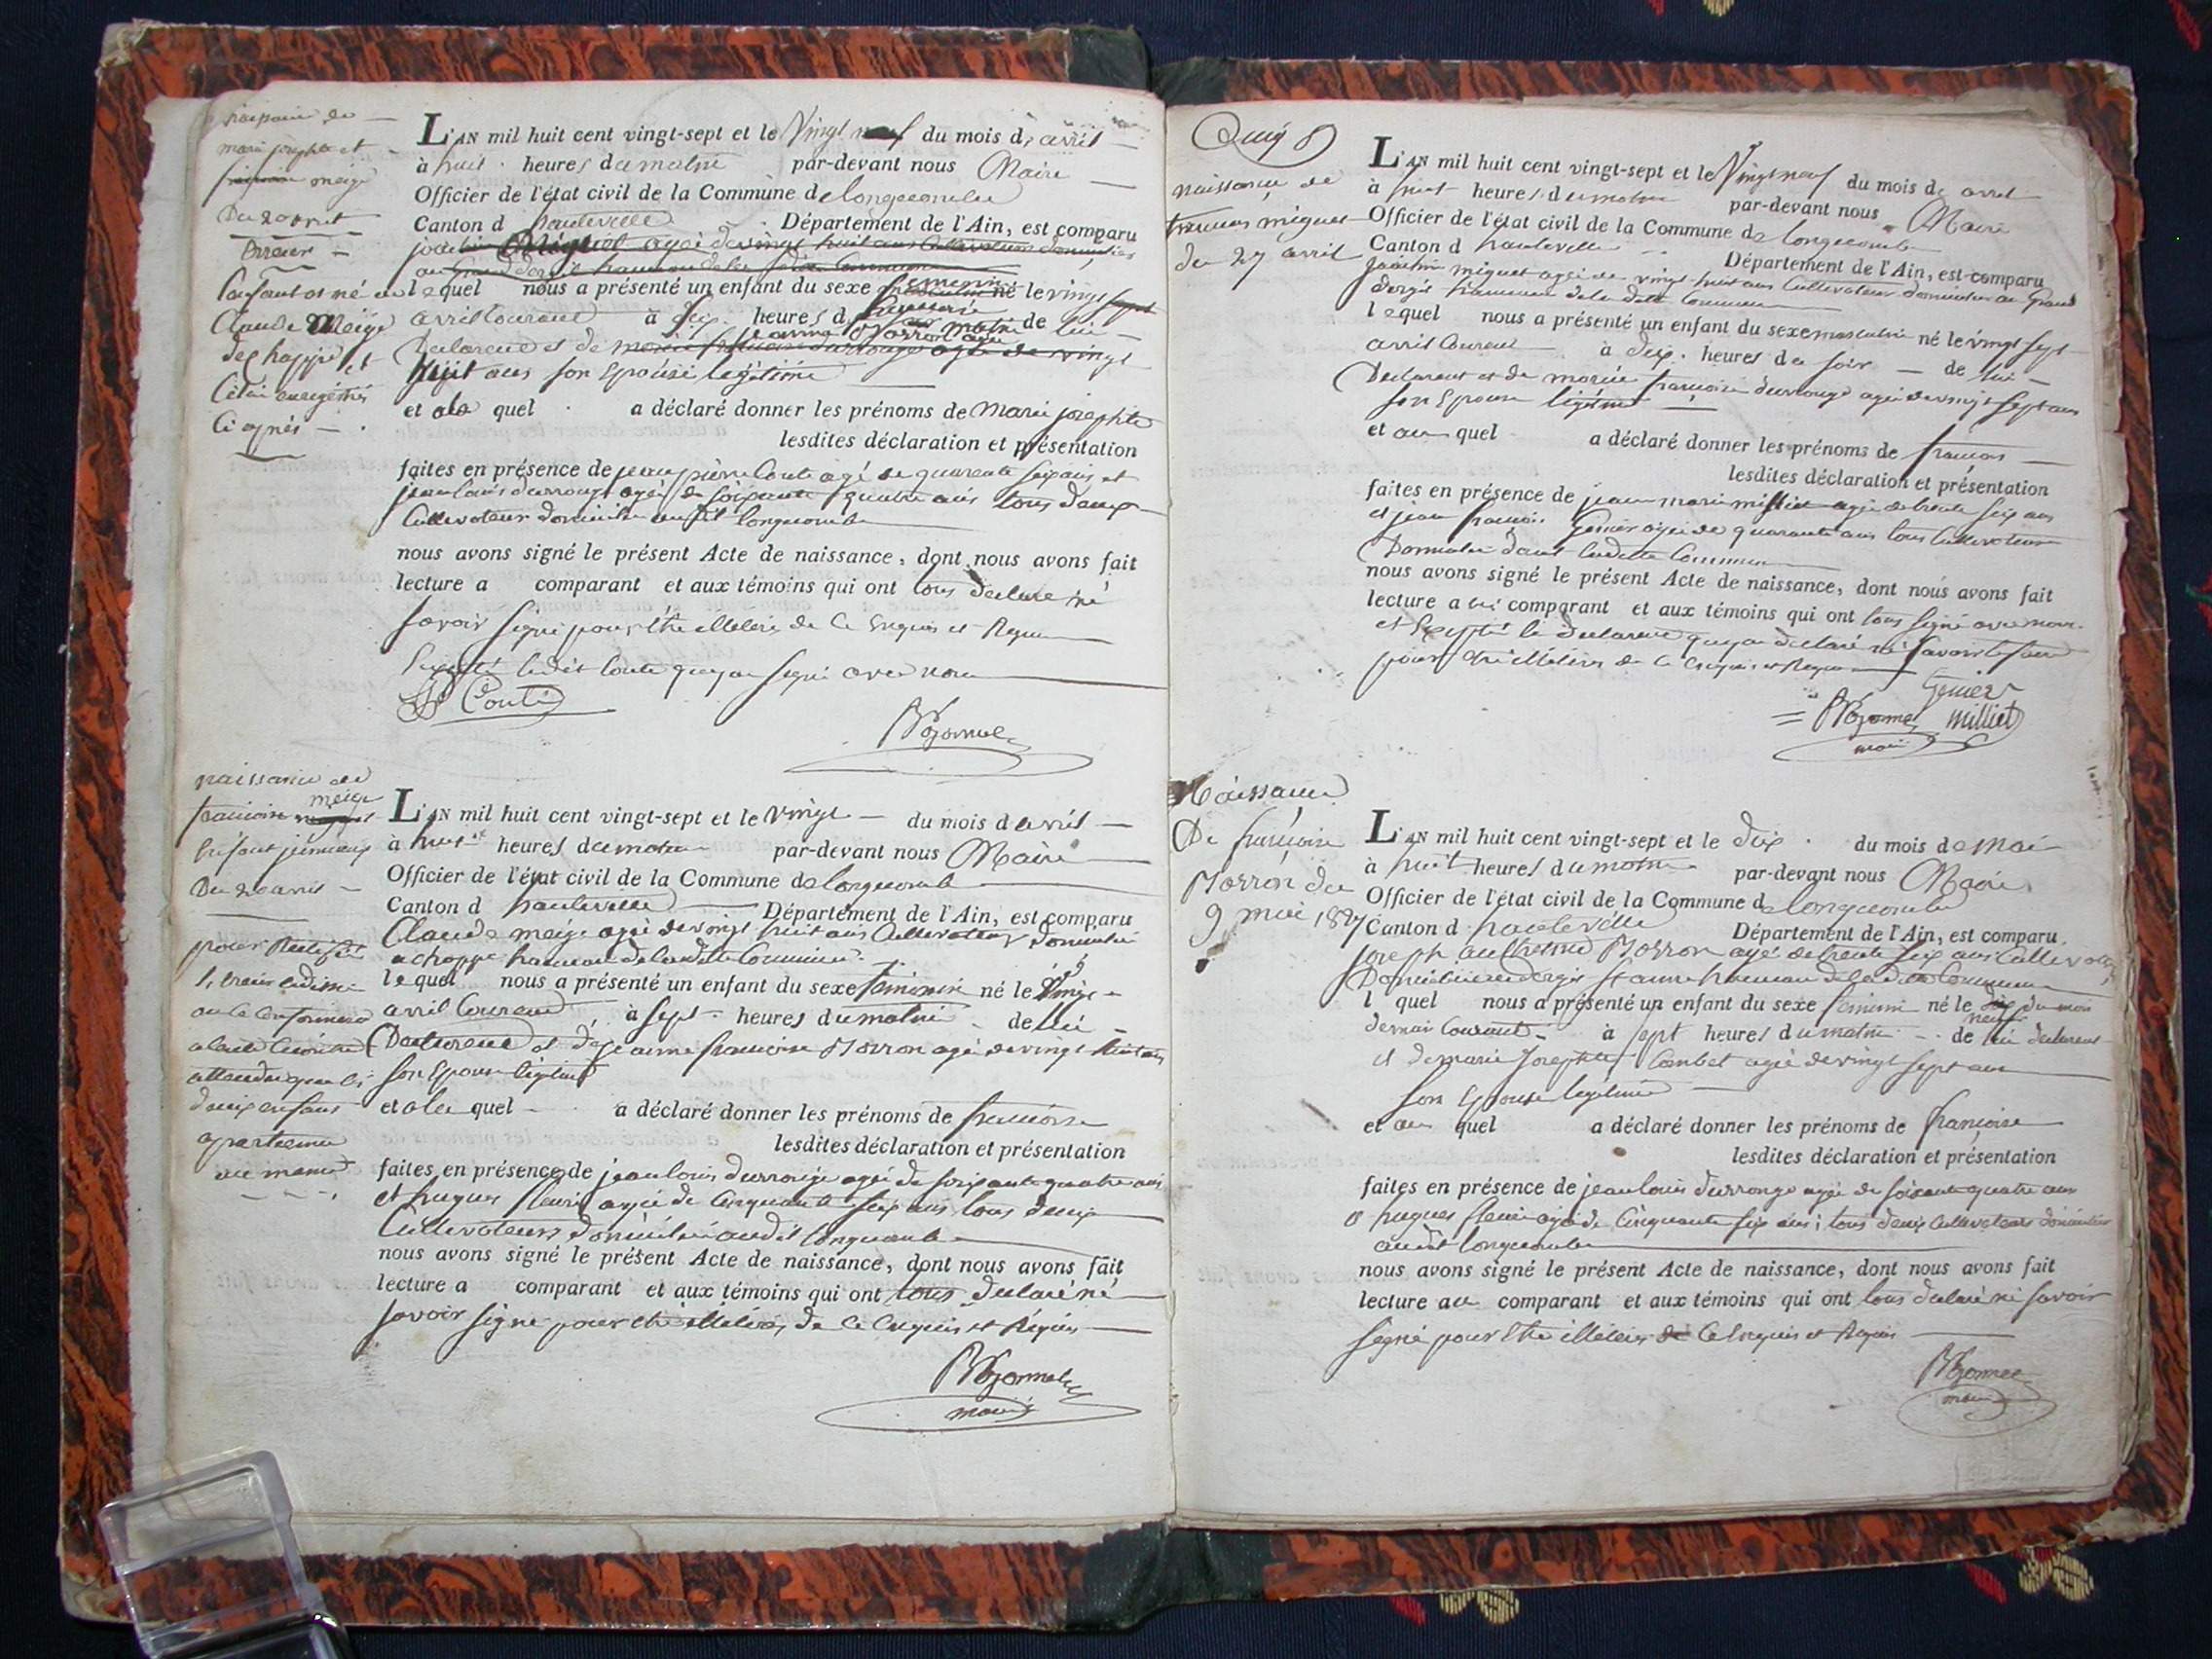 naissance de
marie josephte et
meige
Du 20 avril
Erreur
L'enfant est né de
Claude Meige
dechappe et
ci après
L'AN mil huit cent vingt-sept et le Vingt du mois d'avril
à huit heures du matin par-devant nous Maire
Officier de l'état civil de la Commune de longecombe
Canton d hauteville Département de l'Ain, est comparu
joachin Miguet agé de vingt huit ans Cultivateur domicilié
au Grand dergis hameau de la dite Commune
lequel nous a présenté un enfant du sexe feminin né le vingt
avril Courant à dix heures d de lui
Declarent et de
huit ans son Epouse legitime
et ala quel a déclaré donner les prénoms de Marie josephte
lesdites déclaration et présentation
faites en présence de jean pierre Conte agé de quarante six ans et
jean louis durrouge agé de soixante quatre ans tous deux
Cultivateur domicilie audit longecombe
nous avons signé le présent Acte de naissance, dont nous avons fait
lecture a comparant et aux témoins qui ont tous declaré né
savoir signé pour être illétéré de ce Enquis et Requis
Excepté ledit Conte qui a signé avec nous
JP Conte
naissance de
francoise meige
Enfant jumeaux
Du 20 avril
deux enfans
apartienne
au meme
L'AN mil huit cent vingt-sept et le vingt du mois d avril
à huit heures du matin par-devant nous Maire
Officier de l'état civil de la Commune de longecombe
Canton d hauteville Département de l'Ain, est comparu
Claude meige agé de vingt huit ans Cultivateur domicilié
a choppe hameau de la dite Commune
lequel nous a présenté un enfant du sexe feminin né le Vingt
avril Courant, à sept heures du matin de lui
Declarent et de jeanne francoise Morron agé de vingt huit ans
son Epouse legitime
et ala quel a déclaré donner les prénoms de francoise
lesdites déclaration et présentation
faites en présence de jean louis durrouge agé de soixante quatre ans
et hugues fleuri agé de Cinquante six ans tous deux
Cultivateurs domicilié audit longecombe
nous avons signé le présent Acte de naissance, dont nous avons fait
lecture a comparant et aux témoins qui ont tous declaré né
savoir signe pour etre illétéré de ce Enquis et Requis
maire
naissance de
francois miguet
du 27 avril
L'AN mil huit cent vingt-sept et le Vingt neuf du mois de avril
à huit heures du matin par-devant nous Maire
Officier de l'état civil de la Commune de longecombe
Canton d hauteville Département de l'Ain, est comparu
Joachin miguet agé de vingt huit ans Cultivateur domicilié au Grand
dergis hameau de la dite Commune
lequel nous a présenté un enfant du sexe masculin né le vingt sept
avril Courant à dix heures du soir de lui
Declarent et de marie francoise durrouge agé de vingt sept ans
son Epouse legitime
et au quel a déclaré donner les prénoms de francois
lesdites déclaration et présentation
faites en présence de jean marie milliet agé de trente six ans
et jean francois Genier agé de quarante ans tous Cultivateurs
Domicilié dans ladite Commune
nous avons signé le présent Acte de naissance, dont nous avons fait
lecture a lui comparant et aux témoins qui ont tous signé avec nous
et Excepté le declarent qui a declaré né savoir le faire
pour être illétéré de ce Enquis et Requis
Genier
milliet
maire
Naissance
De françoise
Morron du
9 mai 1827
L'AN mil huit cent vingt-sept et le dix du mois de Mai
à huit heures du matin par-devant nous Maire
Officier de l'état civil de la Commune de longecombe
Canton d hauteville Département de l'Ain, est comparu
joseph anthelme Morron agé de trente six ans Cultivateur
Domicilié dergis hameau de ladite Commune
l quel nous a présenté un enfant du sexe feminin né le neuf du mois
de mai Courant à sept heures du matin de lui declarent
et de marie Josephte Conbet agé de vingt sept ans
son Epouse legitime
et au quel a déclaré donner les prénoms de françoise
lesdites déclaration et présentation
faites en présence de jean louis durrouge agé de soixante quatre ans
et hugues fleuri agé de Cinquante six ans; tous deux Cultivateurs domicilié
audit longecombe
nous avons signé le présent Acte de naissance, dont nous avons fait
lecture au comparant et aux témoins qui ont tous declaré né savoir
signé pour être illétéré de ce Enquis et Requis
maire